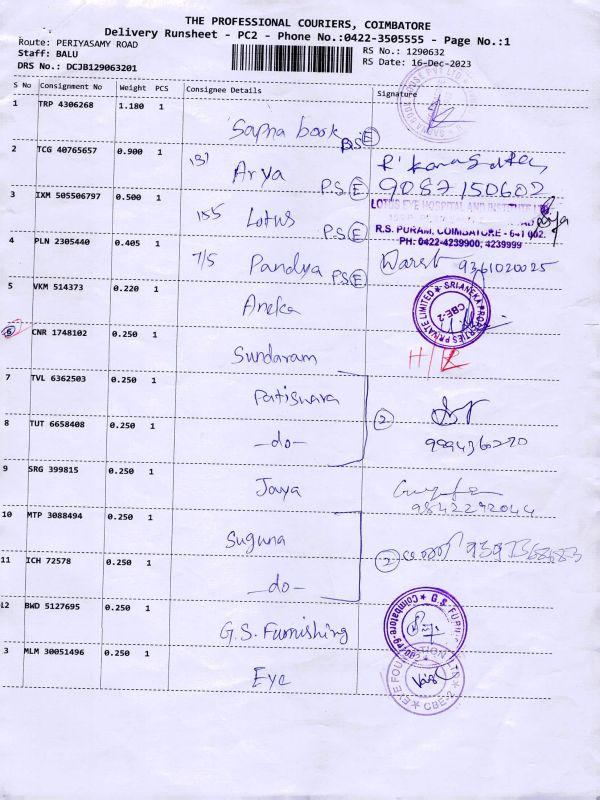 THE PROFESSIONAL COURIERS, COIMBATORE
Delivery Runsheet - PC2 - Phone No.:0422-3505555 - Page No.:1
Route: PERIYASAMY ROAD
RS No.: 1290632
Staff: BALU
RS Date: 16-Dec-2023
DRS No.: DCJB129063201
S No Consignment No Weight PCS Consignee Details Signature
1 TRP 4306268 1.180 1
Sapna book
2 TCG 40765657 0.900 1
Arya P.S E 9087150602
3 IXM 505506797 0.500 1
LOTUS EYE HOSPITAL AND INSTITUTE
155 Lotus P.S E R.S. PURAM, COIMBATORE - 641 002.
PH: 0422-4239900, 4239999
4 PLN 2305440 0.405 1
7/5 Pandya P.S E 9361020025
5 VKM 514373 0.220 1
Aneka SRIANEKA PROPERTIES PRIVATE LIMITED CBE-2
6 CNR 1748102 0.250 1
Sundaram
7 TVL 6362503 0.250 1
Patiswara
2
8 TUT 6658408 0.250 1
-do- 9994360270
9 SRG 399815 0.250 1
Jaya
9842292044
10 MTP 3088494 0.250 1
Suguna
2
11 ICH 72578 0.250 1
-do-
12 BWD 5127695 0.250 1
G.S. Furnishing
3 MLM 30051496 0.250 1
Eye EYE FOUNDATION LTD CBE-2